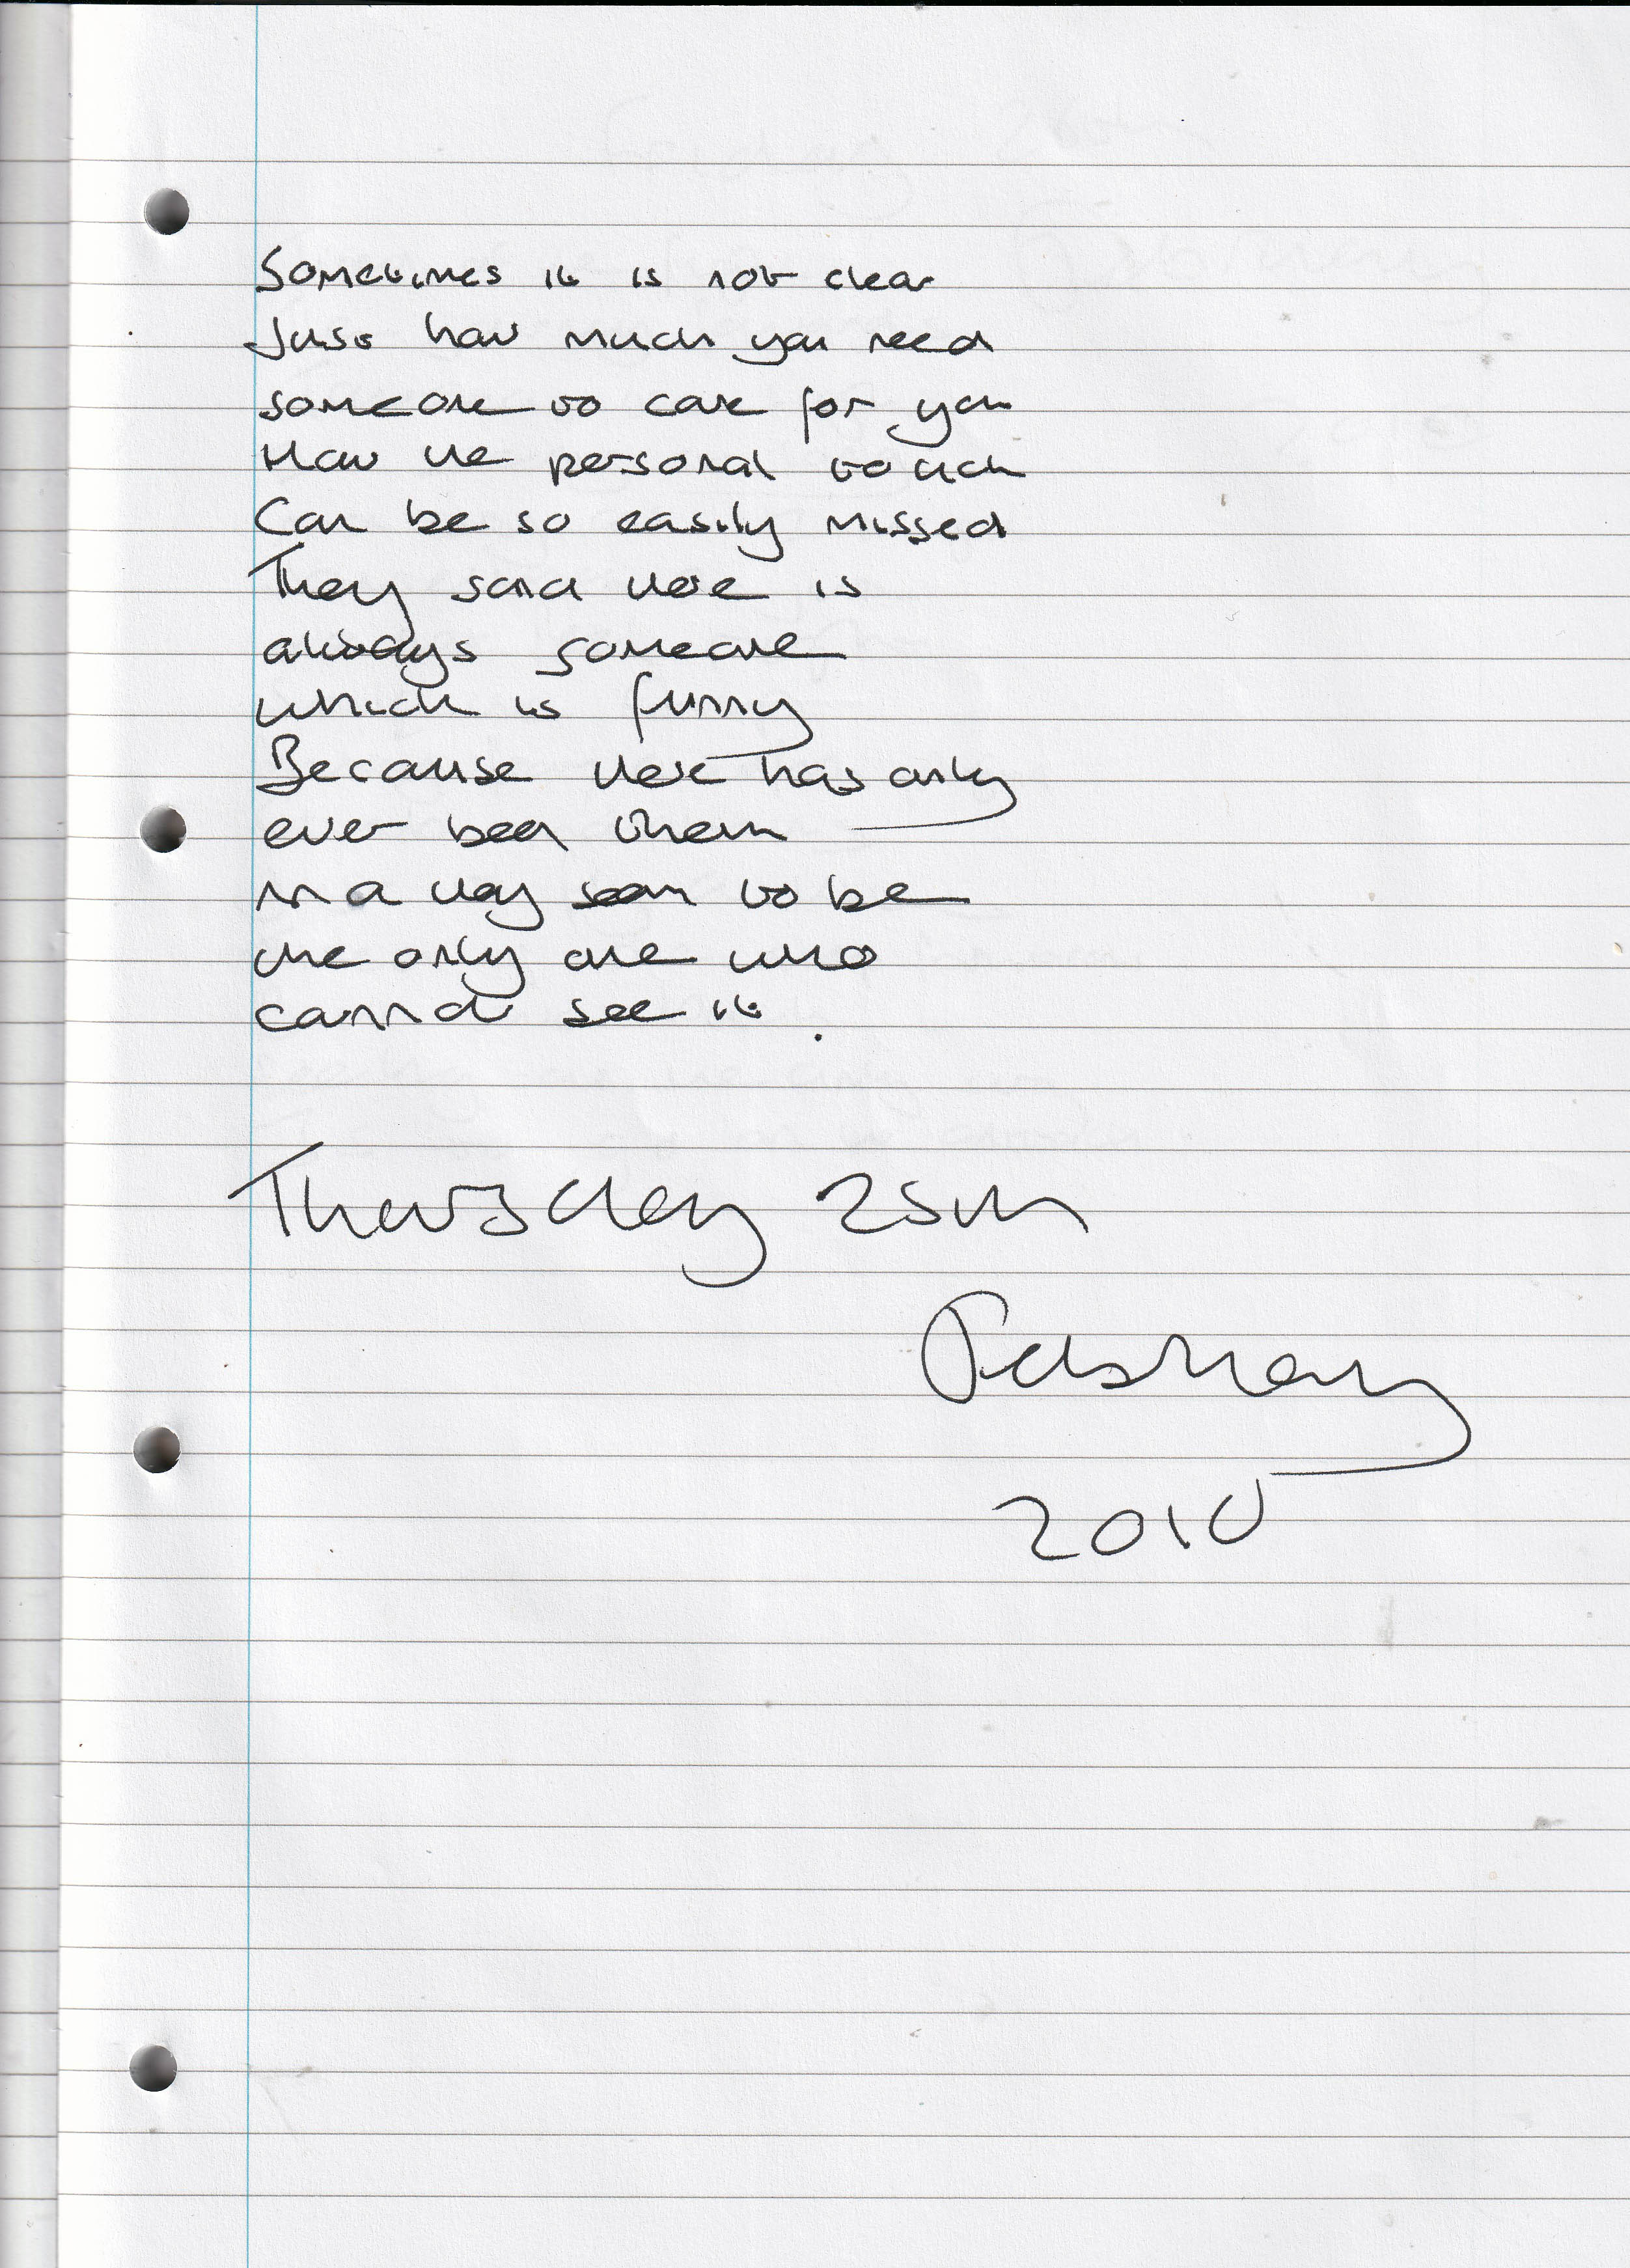 Sometimes it is not clear
Just how much you need
someone to care for you
How the personal touch
Can be so easily missed
They said there is
always someone
which is funny
Because there has only
ever been them
in a way seem to be
the only one who
cannot see it.
Thursday 25th
February
2010